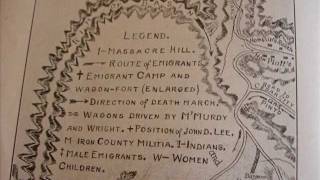 LEGEND.
1-MASSACRE HILL.
ROUTE OF EMIGRANTS
EMIGRANT CAMP AND
WAGON-FORT (ENLARGED)
DIRECTION OF DEATH MARCH.
WAGONS DRIVEN BY M'MURDY
AND WRIGHT. + POSITION OF JOHN D. LEE.
M-IRON COUNTY MILITIA. I-INDIANS.
‡ MALE EMIGRANTS. W-WOMEN
CHILDREN.
ROAD TO